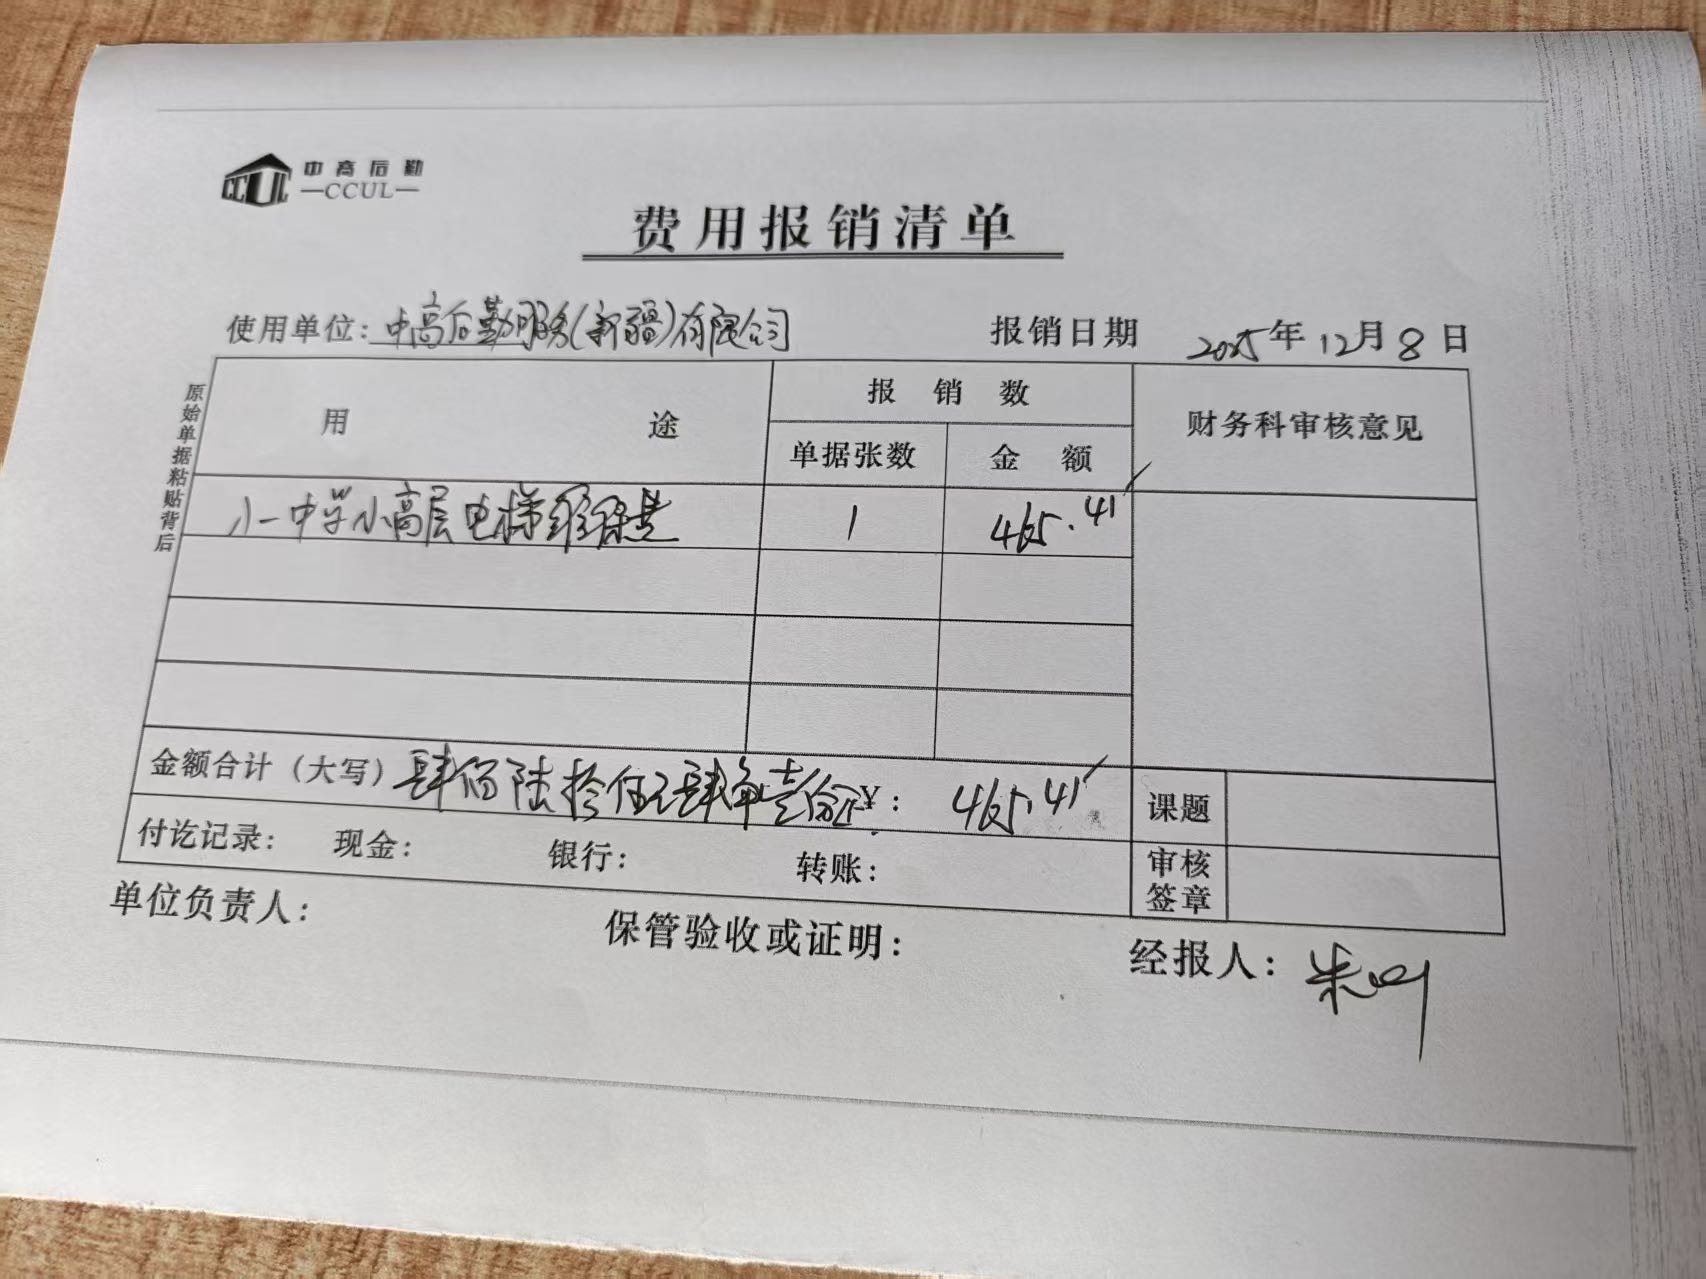 中高后勤
CCUL
—CCUL—
费用报销清单
使用单位：中高后勤服务(新疆)有限公司 报销日期 2025年12月8日
原始单据粘贴背后
用途 报销数 财务科审核意见
单据张数 金额
八一中学小高层电梯维保费 1 465.41
金额合计（大写）肆佰陆拾伍元肆角壹分正 ¥：465.41 课题
付讫记录： 现金： 银行： 转账： 审核签章
单位负责人： 保管验收或证明： 经报人：朱